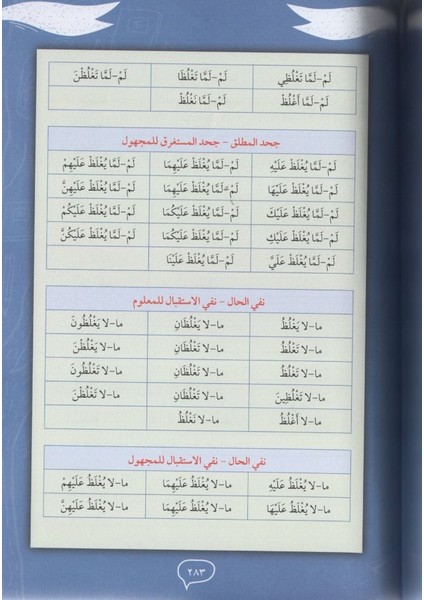 لَمْ-لَمَّا تَغْلُظِي لَمْ-لَمَّا تَغْلُظَا لَمْ-لَمَّا تَغْلُظْنَ
لَمْ-لَمَّا أَغْلُظْ لَمْ-لَمَّا نَغْلُظْ
جحد المطلق - جحد المستغرق للمجهول
لَمْ-لَمَّا يُغْلَظْ عَلَيْهِ لَمْ-لَمَّا يُغْلَظْ عَلَيْهِمَا لَمْ-لَمَّا يُغْلَظْ عَلَيْهِمْ
لَمْ-لَمَّا يُغْلَظْ عَلَيْهَا لَمْ-لَمَّا يُغْلَظْ عَلَيْهِمَا لَمْ-لَمَّا يُغْلَظْ عَلَيْهِنَّ
لَمْ-لَمَّا يُغْلَظْ عَلَيْكَ لَمْ-لَمَّا يُغْلَظْ عَلَيْكُمَا لَمْ-لَمَّا يُغْلَظْ عَلَيْكُمْ
لَمْ-لَمَّا يُغْلَظْ عَلَيْكِ لَمْ-لَمَّا يُغْلَظْ عَلَيْكُمَا لَمْ-لَمَّا يُغْلَظْ عَلَيْكُنَّ
لَمْ-لَمَّا يُغْلَظْ عَلَيَّ لَمْ-لَمَّا يُغْلَظْ عَلَيْنَا
نفي الحال - نفي الاستقبال للمعلوم
ما-لا يَغْلُظُ ما-لا يَغْلُظَانِ ما-لا يَغْلُظُونَ
ما-لا تَغْلُظُ ما-لا تَغْلُظَانِ ما-لا يَغْلُظْنَ
ما-لا تَغْلُظُ ما-لا تَغْلُظَانِ ما-لا تَغْلُظُونَ
ما-لا تَغْلُظِينَ ما-لا تَغْلُظَانِ ما-لا تَغْلُظْنَ
ما-لا أَغْلُظُ ما-لا نَغْلُظُ
نفي الحال - نفي الاستقبال للمجهول
ما-لا يُغْلَظُ عَلَيْهِ ما-لا يُغْلَظُ عَلَيْهِمَا ما-لا يُغْلَظُ عَلَيْهِمْ
ما-لا يُغْلَظُ عَلَيْهَا ما-لا يُغْلَظُ عَلَيْهِمَا ما-لا يُغْلَظُ عَلَيْهِنَّ
٢٨٣